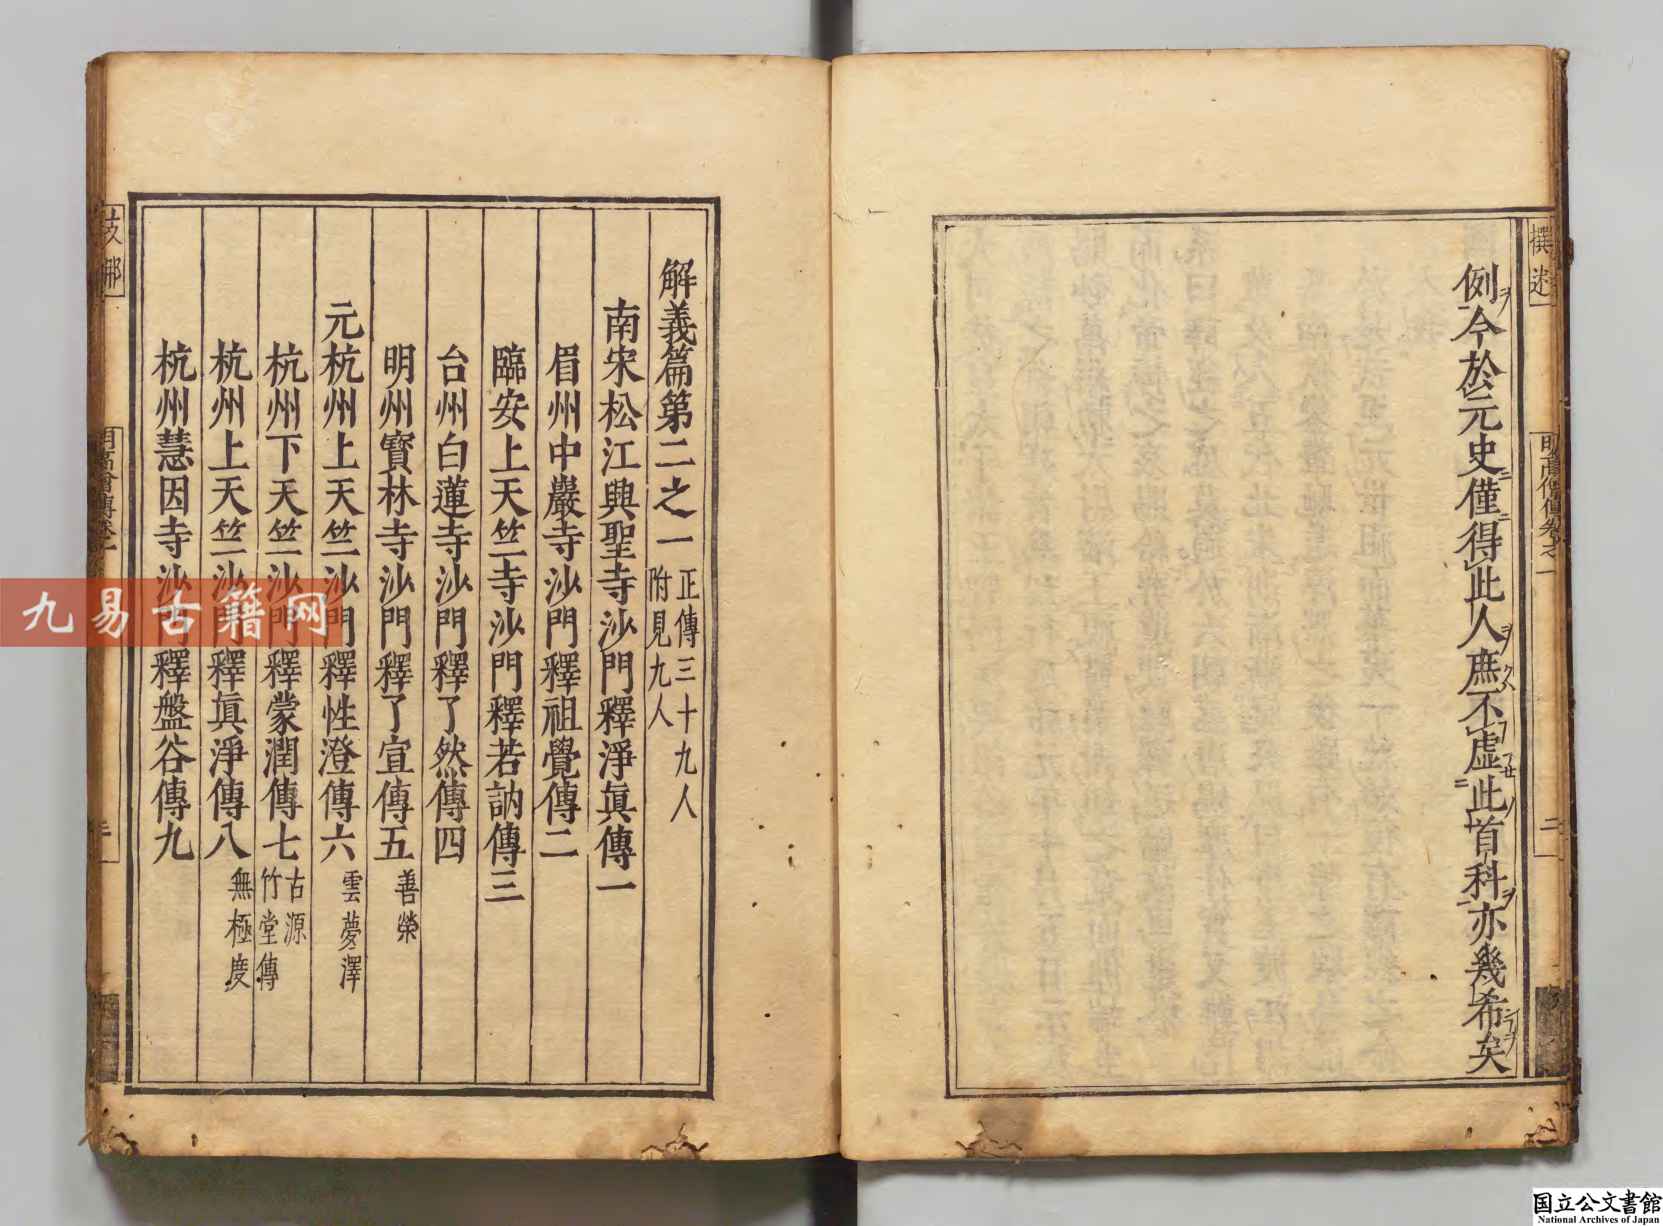 撰述
明高僧傳卷之一
二
例今於元史僅得此人庶不虛此首科亦幾希矣
解義篇第二之一 正傳三十九人 附見九人
南宋松江興聖寺沙門釋淨眞傳一
眉州中巖寺沙門釋祖覺傳二
臨安上天竺寺沙門釋若訥傳三
台州白蓮寺沙門釋了然傳四
明州寶林寺沙門釋了宣傳五 善榮
元杭州上天竺沙門釋性澄傳六 雲夢澤
杭州下天竺沙門釋蒙潤傳七 古源 竹堂傳
杭州上天竺沙門釋眞淨傳八 無極度
杭州慧因寺沙門釋盤谷傳九
九易古籍网
国立公文書館
National Archives of Japan